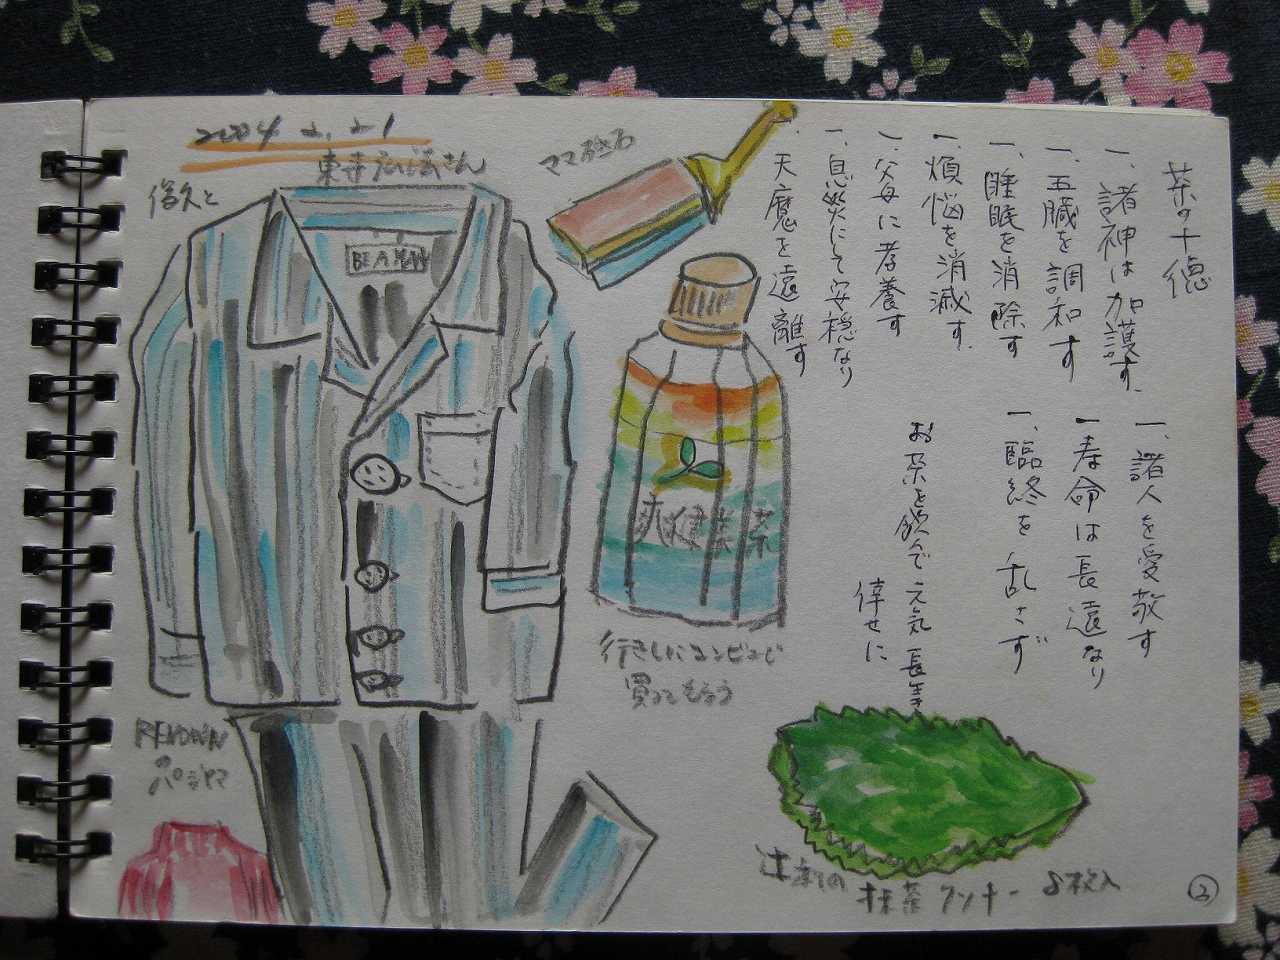 2004.2.21
東寺 弘法さん
俊久と
BE A MAN
茶の十徳
一、諸神は加護す、
一、五臓を調和す
一、睡眠を消除す
一、煩悩を消滅す、
一、父母に孝養す
一、息災にして安穏なり
、天魔を遠離す
一、諸人を愛敬す
一寿命は長遠なり
一、臨終を乱さず
お茶を飲んで元気 長生き
倖せに
爽健美茶
行きしにコンビニで
買ってもらう
RENOWN
の
パジャマ
抹茶クッキー 8枚入
②